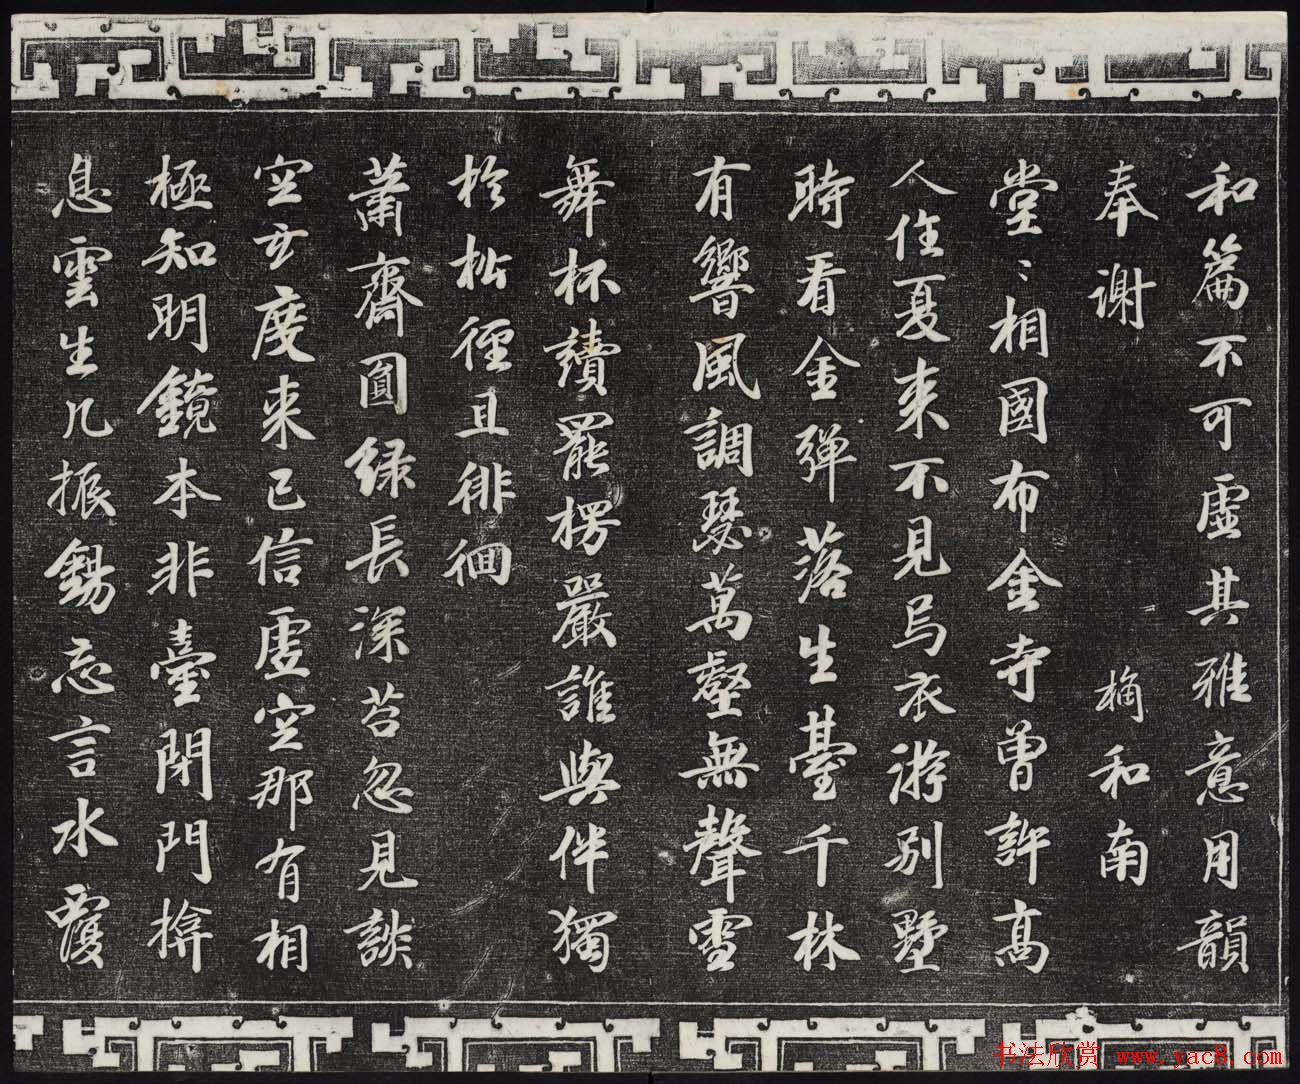 和篇不可虛其雅意用韻
奉謝 和南
堂〻相國布金寺曾許髙
人住夏来不見烏衣游别墅
時看金彈落生臺千林
有響風調瑟萬壑無聲雪
舞杯讀罷楞嚴誰與伴獨
於松徑且徘徊
蕭齋圓緑長深苔忽見談
空玄度来已信虛空那有相
極知明鏡本非臺閉門揜
息雲生几振錫忘言水覆
书法欣赏 www.yac8.com